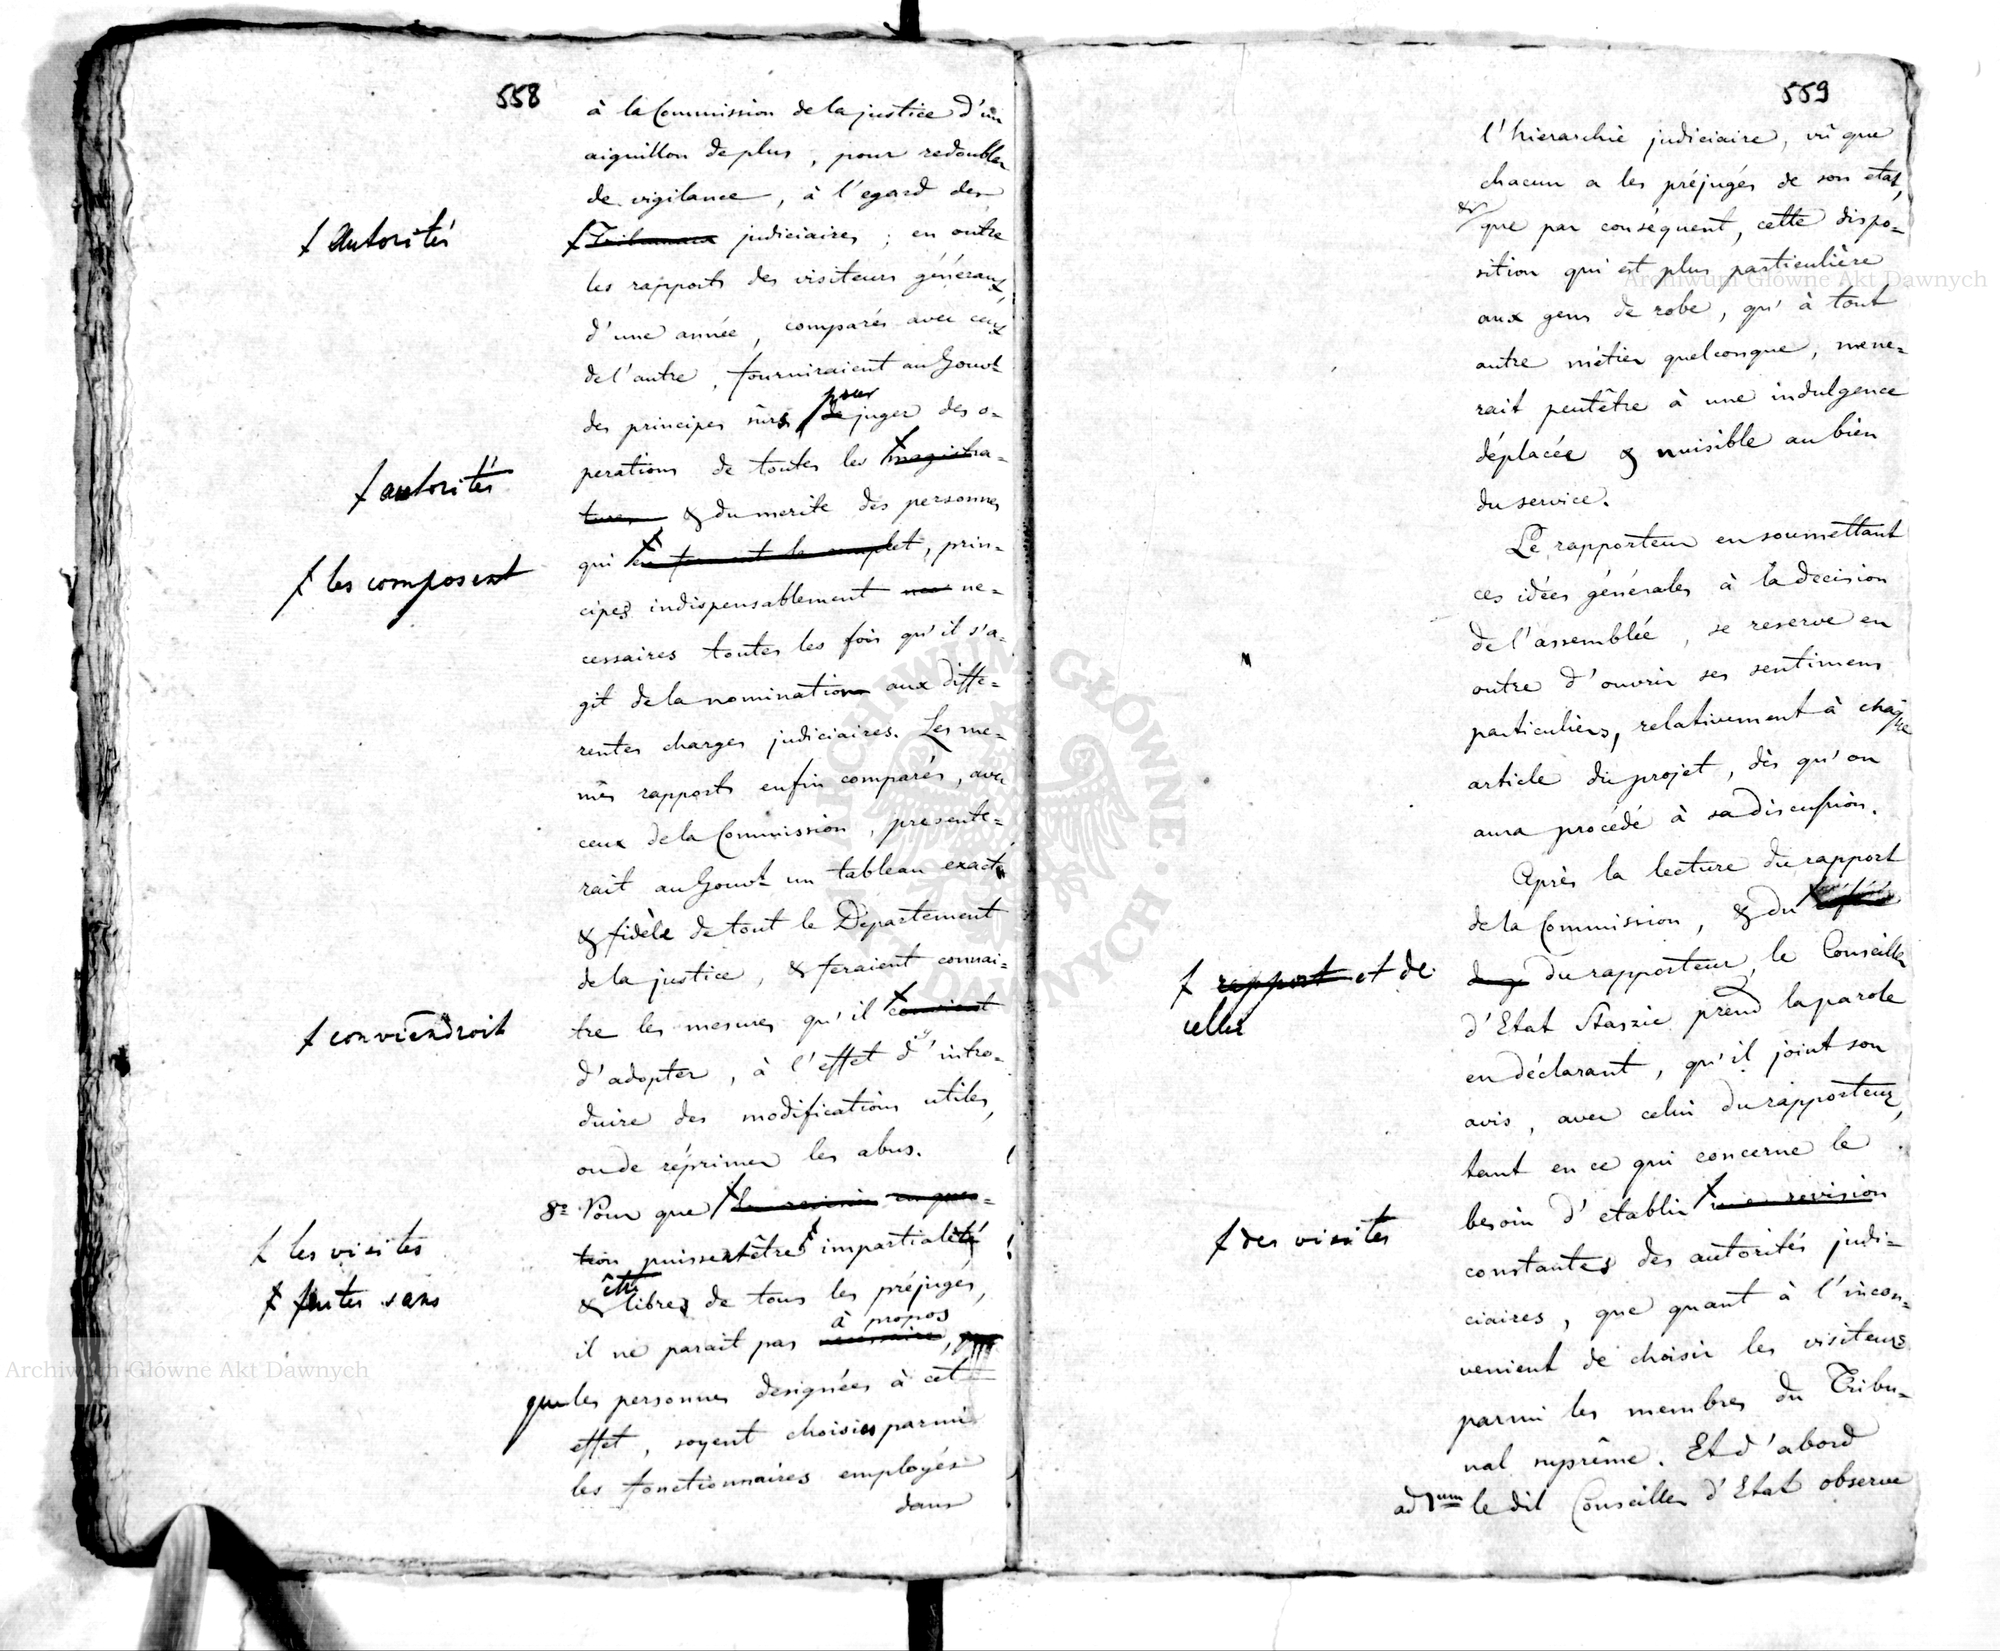 558
à la Commission de la justice d'un
aiguillon de plus, pour redoubler
de vigilance, à l'egard des
ƚ autorités
ƚ Tribunaux judiciaires; en outre
les rapports des visiteurs généraux,
d'une année, comparés avec ceux
de l'autre, fourniraient au Gouvt
pour
des principes sûrs, de juger des o-
perations de toutes les magistra-
ƚ autorités
tures & du merite des personnes
qui en forment le complet, prin-
ƚ les composent
cipes indispensablement nec ne-
cessaires toutes les fois qu'il s'a-
git de la nomination aux diffe-
rentes charges judiciaires. Les me-
mês rapports enfin comparés, avec
ceux de la Commission, presente-
rait au Gouvt un tableau exact
& fidèle de tout le Département
de la justice, & feraient connai-
tre les mesures qu'il convient
ƚ conviendroit
d'adopter, à l'effet d'y intro-
duire des modifications utiles,
ou de réprimer les abus.
8º Pour que la revision en ques-
ƚ les visites
tion puissent être impartialité
ƚ faites sans
être
& libres de tous les préjugés,
à propos
il ne parait pas necessaire,
que les personnes designées à cet
effet, soyent choisies parmi
les fonctionnaires employés
dans
559
l'hierarchie judiciaire, vû que
chacun a les préjugés de son etat,
&
que par conséquent, cette dispo-
sition qui est plus particulière
aux gens de robe, qu'à tout
autre métier quelconque, mene-
rait peutêtre à une indulgence
déplacée & nuisible au bien
du service.
Le rapporteur en soumettant
ces idées générales à la decision
de l'assemblée, se reserve en
outre d'ouvrir ses sentimens
particuliers, relativement à chaque
article du projet, dès qu'on
aura procédé à sa discussion.
Après la lecture du rapport
de la Commission, & du
ƚ rapport et de
celui
du rapporteur, le Conseiller
d'Etat Staszic prend la parole
en déclarant, qu'il joint son
avis, avec celui du rapporteur,
tant en ce qui concerne le
besoin d'etablir une revision
ƚ des visites
constantes des autorités judi-
ciaires, que quant à l'incon-
venient de choisir les visiteurs
parmi les membres du Tribu-
nal suprême. Et d'abord
ad 1um le dit Conseiller d'Etat observe
Archiwum Główne Akt Dawnych
Archiwum Główne Akt Dawnych
ARCHIWUM GŁÓWNE AKT DAWNYCH